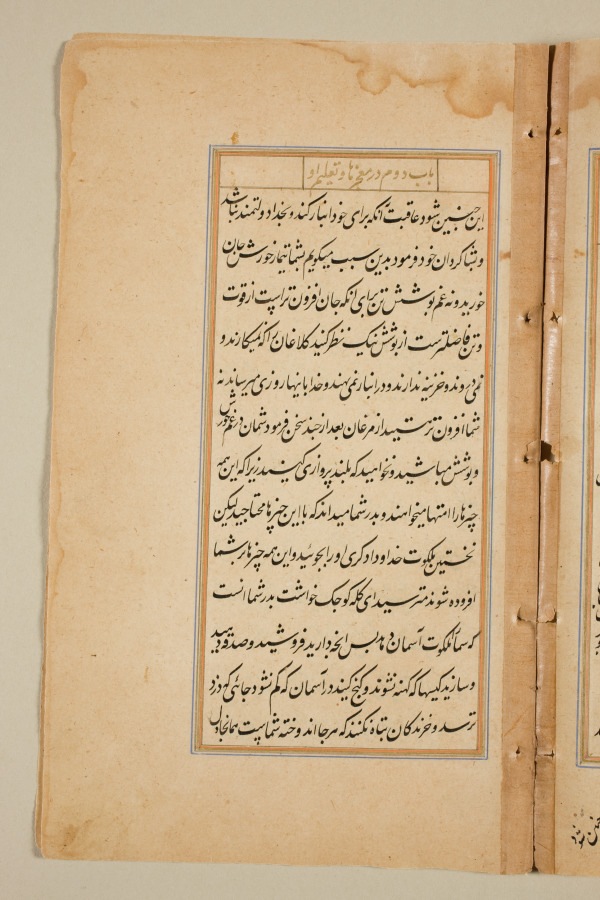 باب دوم در معجزها و تعلیم او
این چنین شود عاقبت آنکه برای خود انبار کند و بخدا دولتمند نباشد
و بشاکردان خود فرمود بدین سبب میکویم بشما تیمار خورش جان
خورید و نه غم پوشش تن برای آنکه جان افزون تر است از قوت
و تن فاضلتر ست از پوشش نیک نظر کنید کلاغان را که نمیکارند و
نمی دروند و خزینه ندارند و در انبار نمی نهند و خدا باینها روزی میرساند نه
شما افزون تر نیستید از مرغان بعد از چند سخن فرمود شمان در غم خورش
و پوشش مباشید و نخواهید که بلند پروازی کنید زیرا که این همه
چیزها را امتها میخواهند و پدر شما میداند که با این چیزها محتاجید لیکن
نخستین ملکوت خدا و دادکری او را بجوئید و این همه چیزها بر شما
افزوده شوند مترسید ای کله کوچک خواشت پدر شما است
که شما را ملکوت آسمان دهد پس آنچه دارید فروشید و صدقه دهید
و سازید کیسها که کهنه نشوند و کنج کنید در آسمان که کم نشود جائی که دزد
نرسد و خزندکان تباه نکنند که هر جا اندوخته شماست همانجا دل